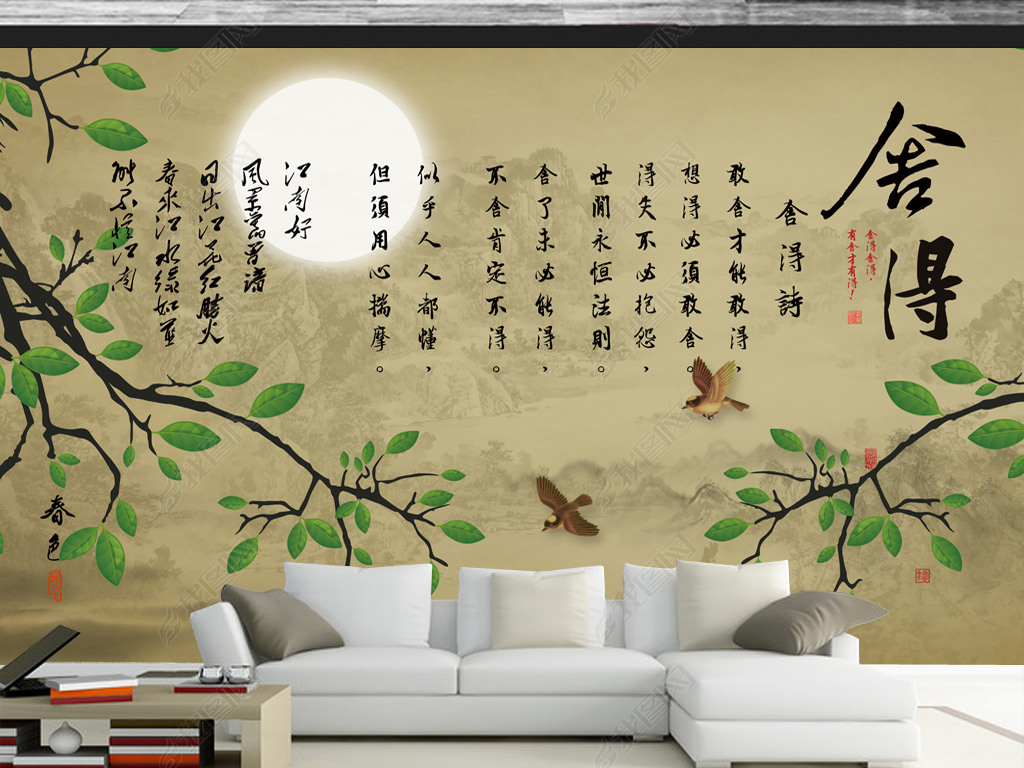 舍得
舍得舍得，
有舍才有得！
舍得詩
敢舍才能敢得，
想得必須敢舍。
得失不必抱怨，
世間永恒法則。
舍了未必能得，
不舍肯定不得。
似乎人人都懂，
但須用心揣摩。
江南好
風景舊曾諳
日出江花紅勝火
春來江水綠如藍
能不憶江南
春色